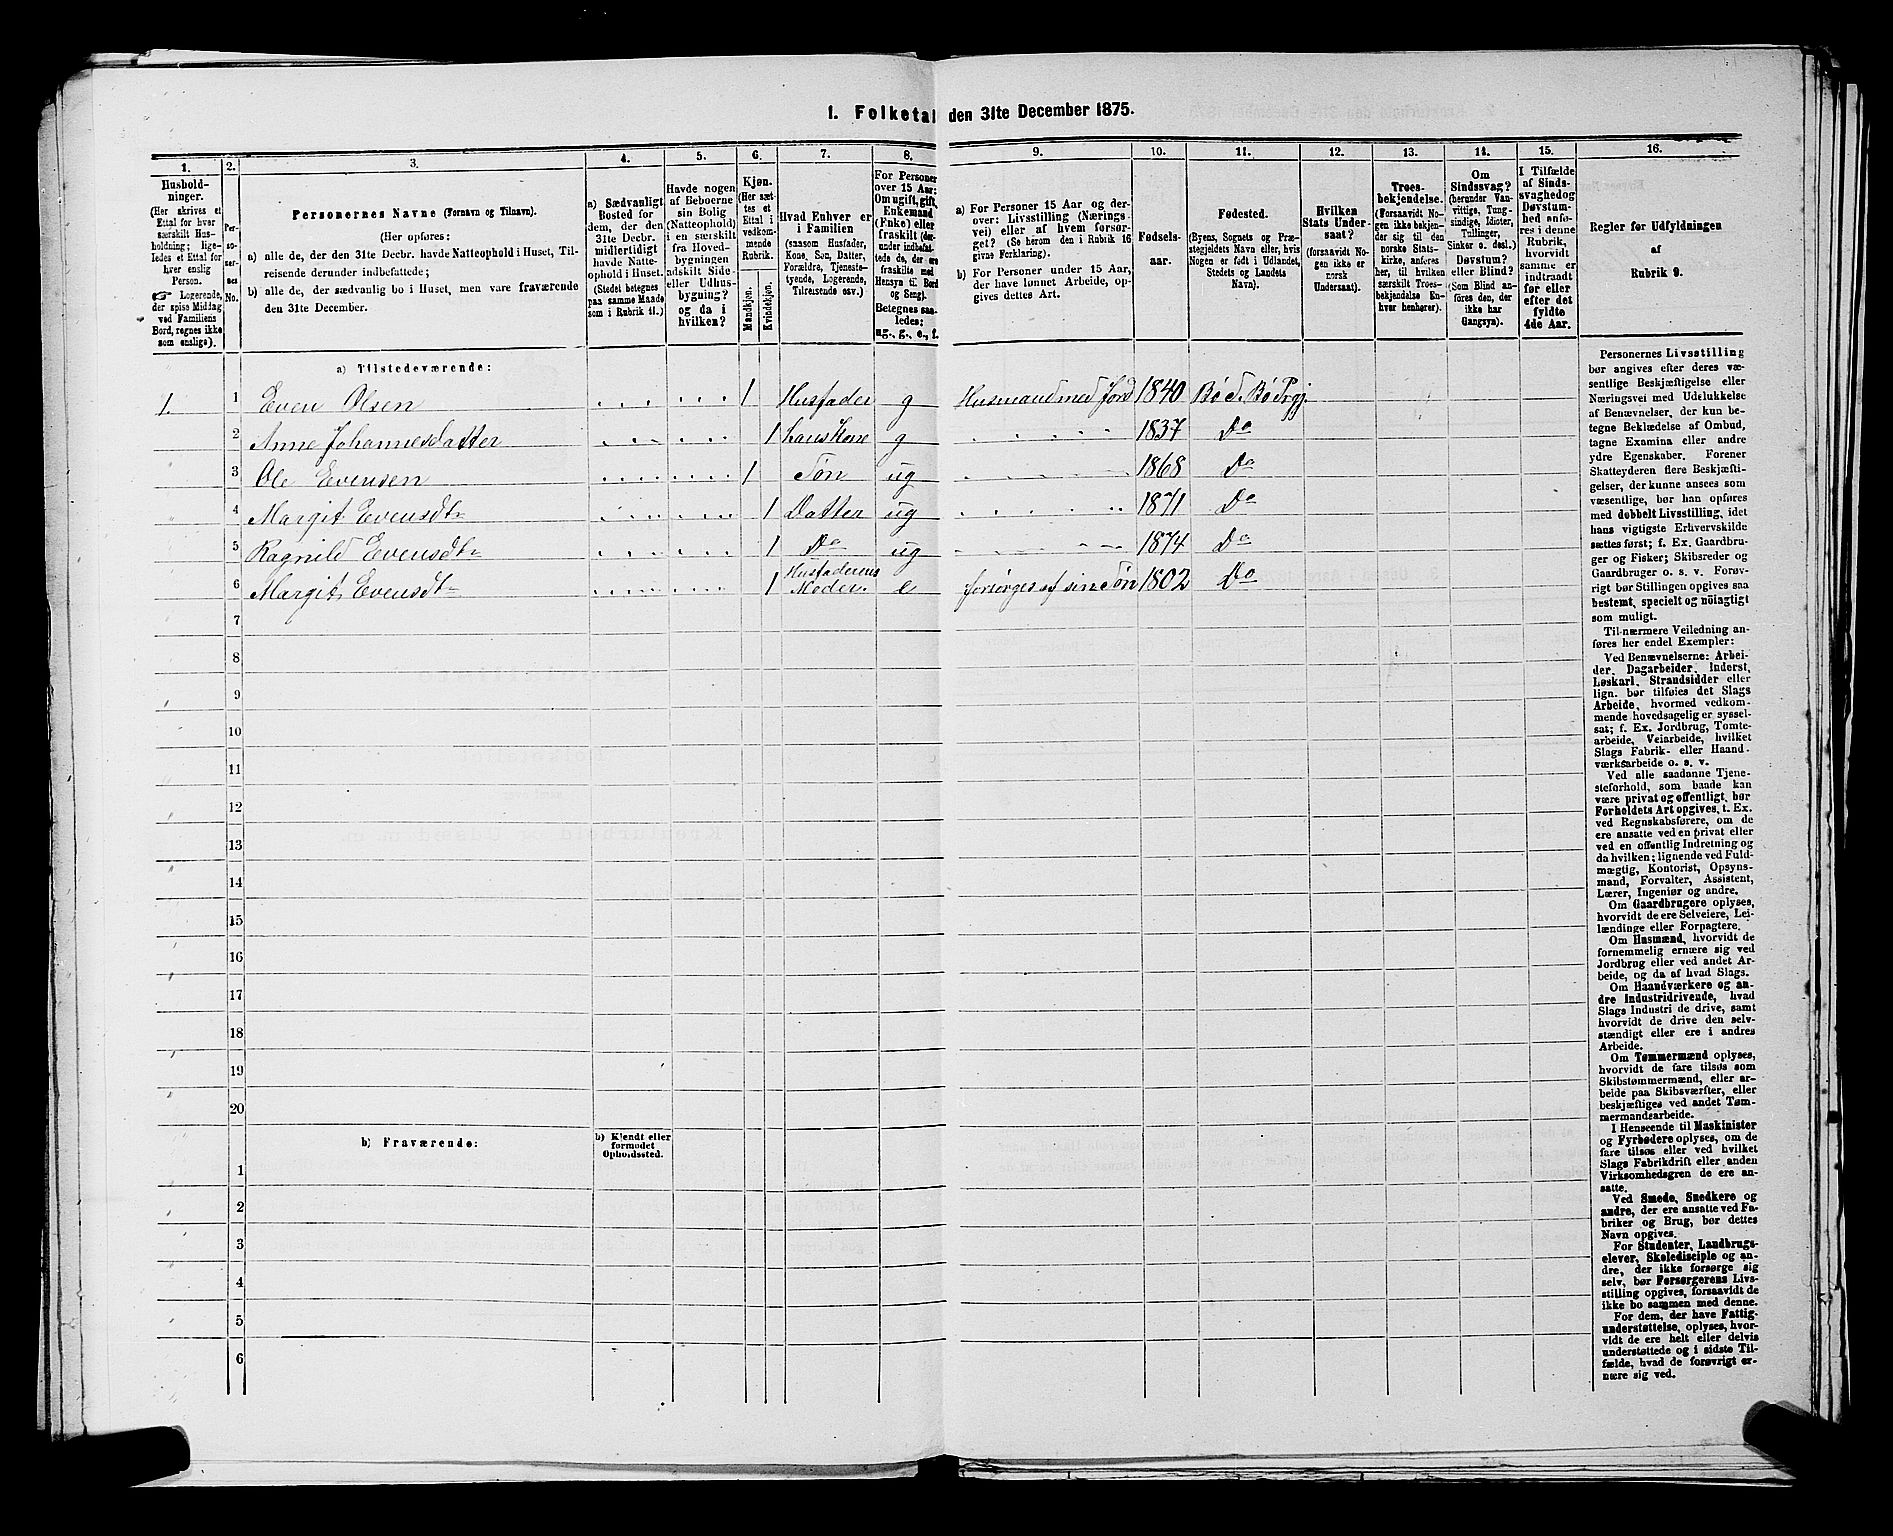 1. Folketal den 31te December 1875.
1. 2. 3. 4. 5. 6. 7. 8. 9. 10. 11. 12. 13. 14. 15. 16.
Hushold-
ninger.
(Her skrives et
Ettal for hver
særskilt Hus-
holdning; lige-
ledes et Ettal for
hver enslig
Person.
☞ Logerende,
der spise Middag
ved Familiens
Bord, regnes ikke
som enslige).
Per-
so-
ner-
nes
No.
Personernes Navne (Fornavn og Tilnavn).
(Her opføres:
a) alle de, der den 31te Decbr. havde Natteophold i Huset, Til-
reisende derunder indbefattede;
b) alle de, der sædvanlig bo i Huset, men vare fraværende
den 31te December.
a) Sædvanligt
Bosted for
dem, der den
31te Decbr.
midlertidigt
havde Natte-
ophold i Huset.
(Stedet betegnes
paa samme Maade
som i Rubrik 11.)
Havde nogen
af Beboerne
sin Bolig
(Natteophold)
i en særskilt
fra Hoved-
bygningen
adskilt Side-
eller Udhus-
bygning?
og da i
hvilken?
Kjøn.
(Her sæt-
tes et
Ettal i
vedkom-
mende
Rubrik.
Mandkjøn.
Kvindekjøn.
Hvad Enhver er
i Familien
(saasom Husfader,
Kone, Søn, Datter,
Forældre, Tjeneste-
tyende, Logerende,
Tilreisende osv.)
For Personer
over 15 Aar:
Om ugift, gift,
Enkemand
(Enke) eller
fraskilt (der-
under indbefat-
tede de, der ere
fraskilte med
Hensyn til Bord
og Seng).
Betegnes saa-
ledes:
ug., g., e., f.
a) For Personer 15 Aar og der-
over: Livsstilling (Nærings-
vei) eller af hvem forsør-
get? (Se herom den i Rubrik 16
givne Forklaring).
b) For Personer under 15 Aar,
der have lønnet Arbeide, op-
gives dettes Art.
Fødsels-
aar.
Fødested.
(Byens, Sognets og Præ-
stegjeldets Navn eller, hvis
Nogen er født i Udlandet,
Stedets og Landets
Navn).
Hvilken
Stats Under-
saat?
(forsaavidt No-
gen ikke er
norsk
Undersaat).
Troes-
bekjendelse.
(Forsaavidt No-
gen ikke bekjen-
der sig til den
norske Stats-
kirke, anføres
her, til hvilken
særskilt Troes-
bekjendelse En-
hver henhører).
Om
Sindssvag?
(herunder Van-
vittige, Tung-
sindige, Idioter,
Tullinger,
Sinker o. desl.)
Døvstum?
eller Blind?
(Som Blind an-
føres den, der
ikke har
Gangsyn).
I Tilfælde
af Sinds-
svaghed og
Døvstum-
hed anfø-
res i denne
Rubrik,
hvorvidt
samme er
indtraadt
før eller
efter det
fyldte
4de Aar.
Regler før Udfyldningen
af
Rubrik 9.
a) Tilstedeværende:
1. 1 Even Olsen 1 Husfader g Husmand med Jord 1840 Bø S. Bø Prgj.
2 Anne Johannesdatter 1 hans Kone g 1837 Do
3 Ole Evensen 1 Søn ug 1868 Do
4 Margit Evensdtr 1 Datter ug 1871 Do
5 Ragnild Evensdtr 1 Do ug 1874 Do
6 Margit Evensdtr 1 Husfaderens
Moder. e forsørges af sin Søn 1802 Do
7
8
9
10
11
12
13
14
15
16
17
18
19
20
b) Fraværende:
b) Kjendt eller
formodet
Opholdssted.
1
2
3
4
5
6
Personernes Livsstilling
bør angives efter deres væ-
sentlige Beskjæftigelse eller
Næringsvei med Udelukkelse
af Benævnelser, der kun be-
tegne Beklædelse af Ombud,
tagne Examina eller andre
ydre Egenskaber. Forener
Skatteyderen flere Beskjæfti-
gelser, der kunne ansees som
væsentlige, bør han opføres
med dobbelt Livsstilling, idet
hans vigtigste Erhvervskilde
sættes først; f. Ex. Gaardbru-
ger og Fisker; Skibsreder og
Gaardbruger o. s. v. Forøv-
rigt bør Stillingen opgives saa
bestemt, specielt og nøiagtigt
som muligt.
Til nærmere Veiledning an-
føres her endel Exempler:
Ved Benævnelserne: Arbei-
der, Dagarbeider, Inderst,
Løskarl, Strandsidder eller
lign. bør tilføies det Slags
Arbeide, hvormed vedkom-
mende hovedsagelig er syssel-
sat; f. Ex. Jordbrug, Tomte-
arbeide, Veiarbeide, hvilket
Slags Fabrik- eller Haand-
værksarbeide o. s. v.
Ved alle saadanne Tjene-
steforhold, som baade kan
være privat og offentligt, bør
Forholdets Art opgives, t. Ex.
ved Regnskabsførere, om de
ere ansatte ved en privat eller
ved en offentlig Indretning og
da hvilken; lignende ved Fuld-
mægtig, Kontorist, Opsyns-
mand, Forvalter, Assistent,
Lærer, Ingeniør og andre.
Om Gaardbrugere oplyses,
hvorvidt de ere Selveiere, Lei-
lændinge eller Forpagtere.
Om Husmænd, hvorvidt de
fornemmelig ernære sig ved
Jordbrug eller ved andet Ar-
beide, og da af hvad Slags.
Om Haandværkere og an-
dre Industridrivende, hvad
Slags Industri de drive, samt
hvorvidt de drive den selv-
stændigt eller ere i andres
Arbeide.
Om Tømmermænd oplyses,
hvorvidt de fare tilsøs som
Skibstømmermænd, eller ar-
beide paa Skibsværfter, eller
beskjæftiges ved andet Tøm-
mermandsarbeide.
I Henseende til Maskinister
og Fyrbødere oplyses, om de
fare tilsøs eller ved hvilket
Slags Fabrikdrift eller anden
Virksomhedsgren de ere an-
satte.
Ved Smede, Snedkere og
andre, der ere ansatte ved Fa-
briker og Brug, bør dettes
Navn opgives.
For Studenter, Landbrugs-
elever, Skoledisciple og an-
dre, der ikke forsørge sig
selv, bør Forsørgerens Livs-
stilling opgives, forsaavidt de
ikke bo sammen med denne.
For dem, der have Fattig-
understøttelse, oplyses, hvor-
vidt de ere helt eller delvis
understøttede og i sidste Til-
fælde, hvad de forøvrigt er-
nære sig ved.